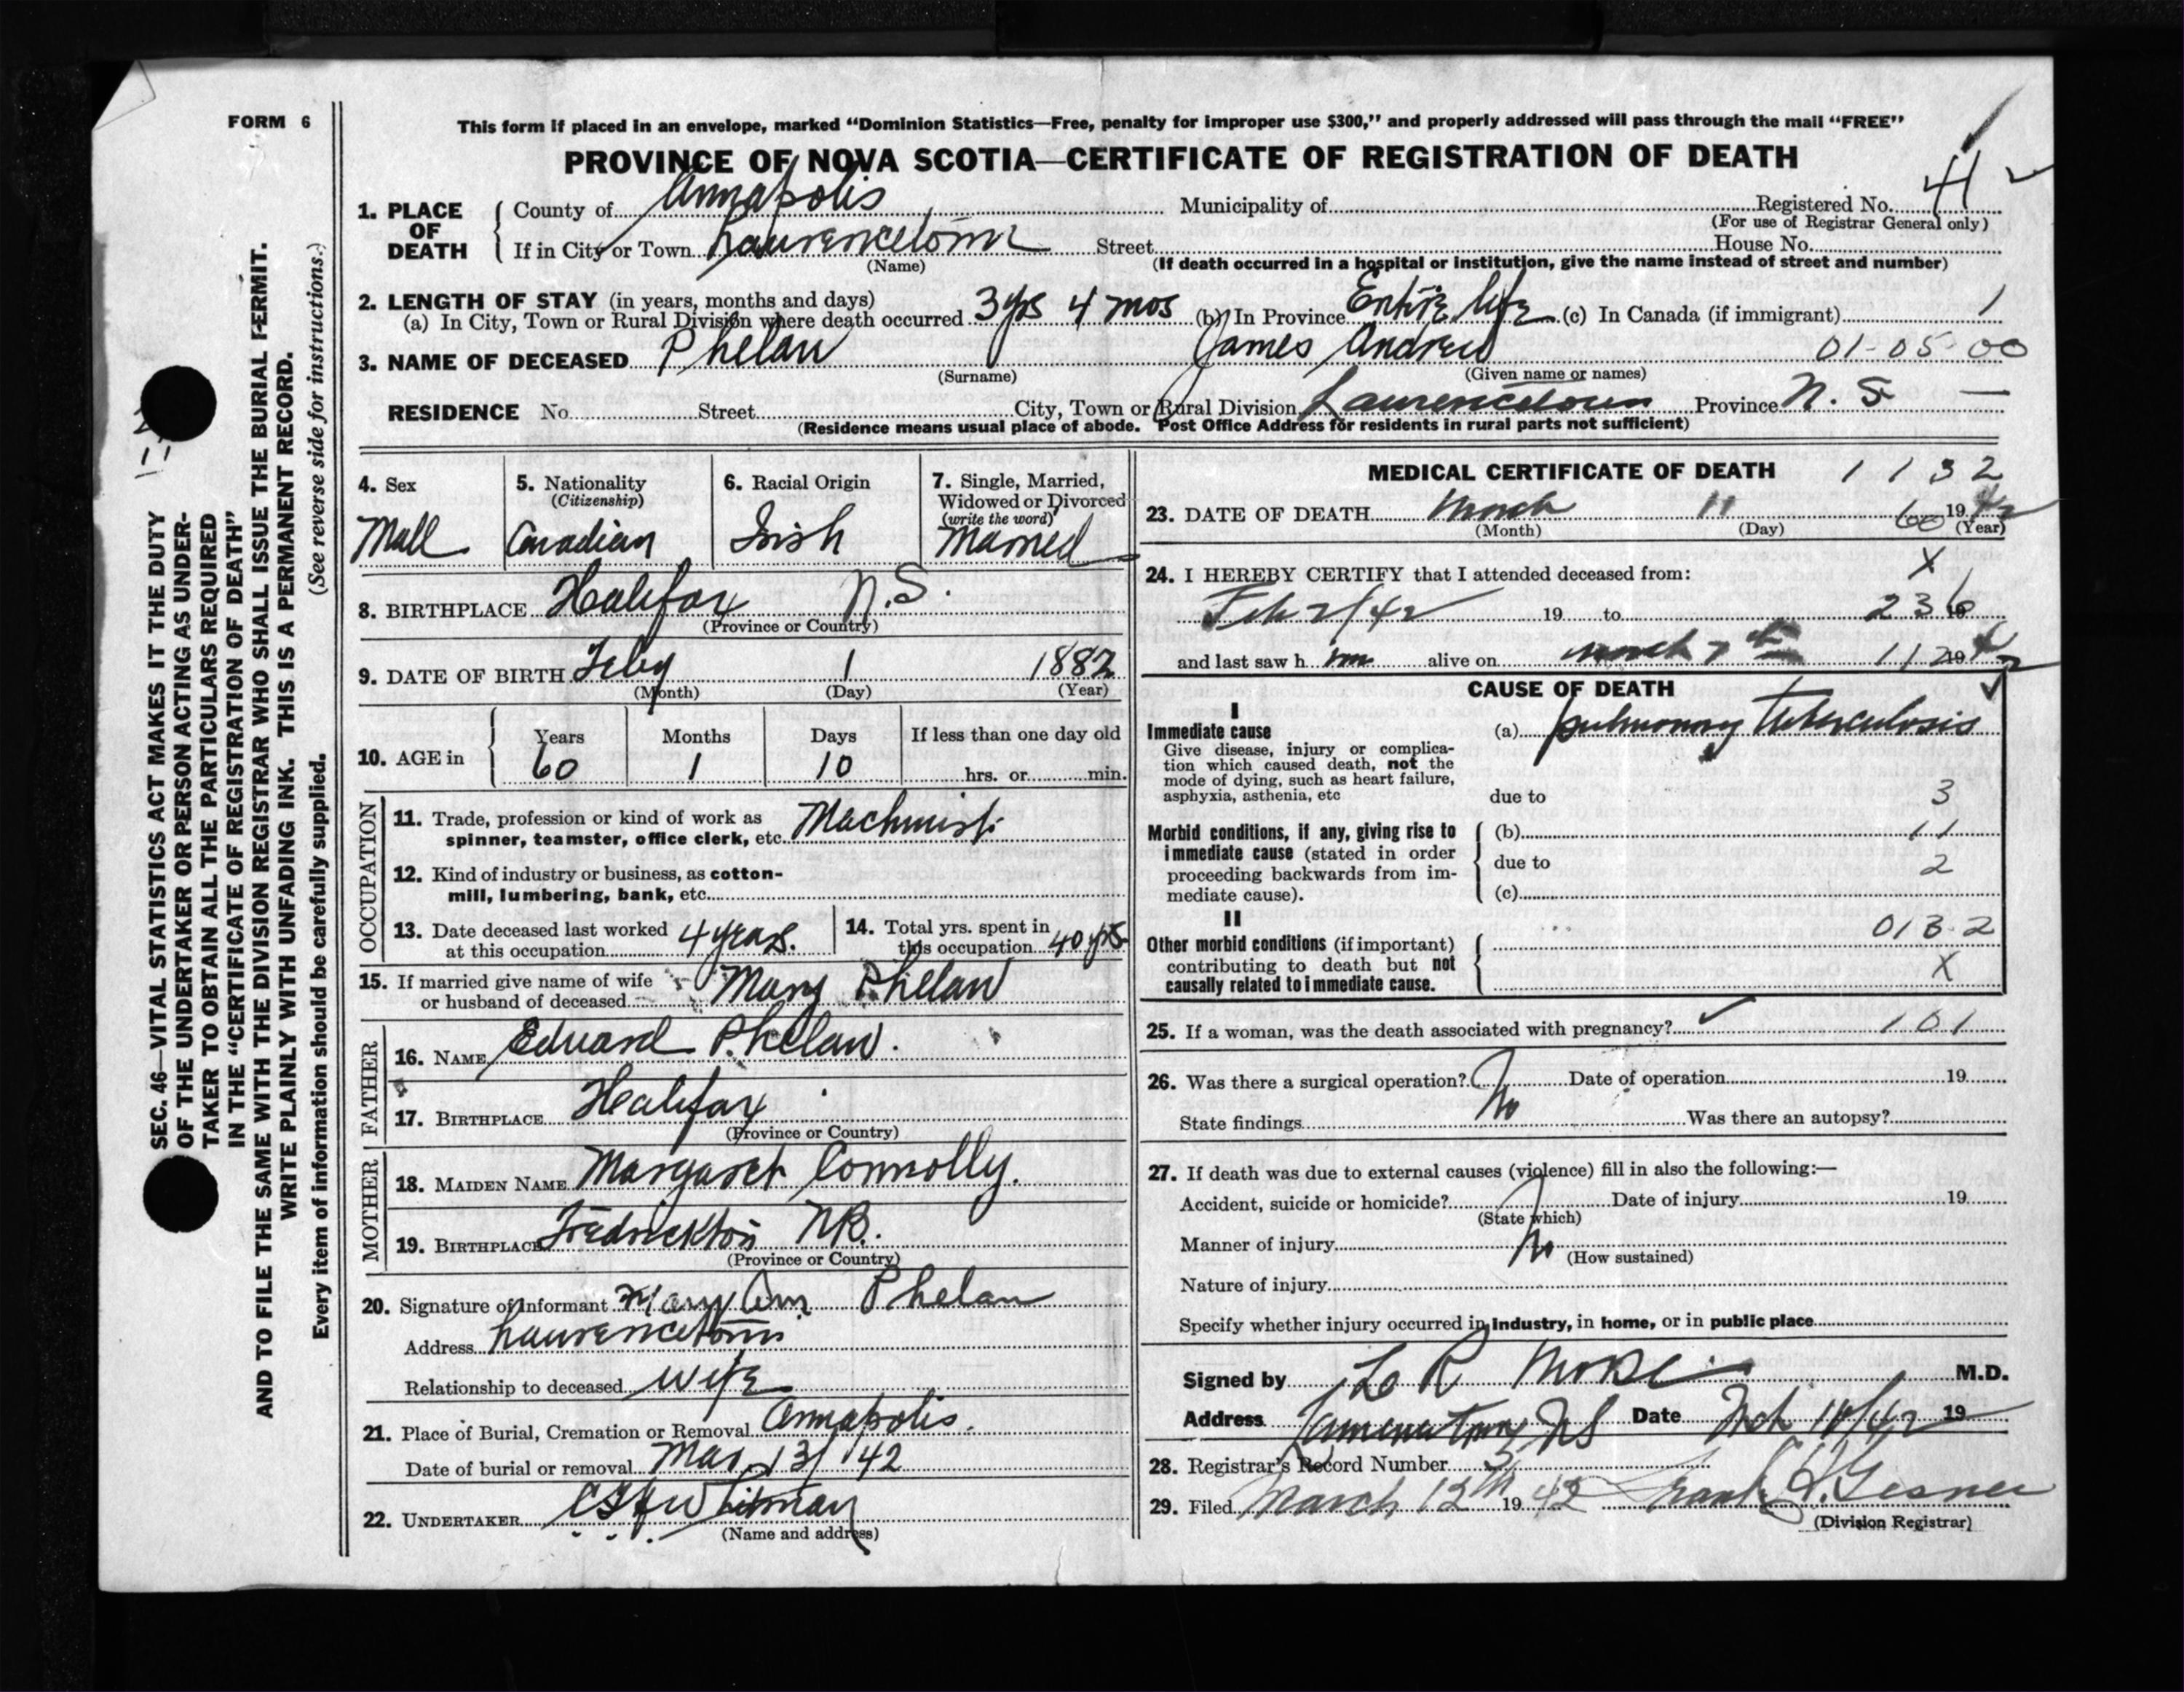 FORM 6
This form if placed in an envelope, marked “Dominion Statistics—Free, penalty for improper use $300,” and properly addressed will pass through the mail “FREE”
PROVINCE OF NOVA SCOTIA—CERTIFICATE OF REGISTRATION OF DEATH
SEC. 46—VITAL STATISTICS ACT MAKES IT THE DUTY
OF THE UNDERTAKER OR PERSON ACTING AS UNDER-
TAKER TO OBTAIN ALL THE PARTICULARS REQUIRED
IN THE “CERTIFICATE OF REGISTRATION OF DEATH”
AND TO FILE THE SAME WITH THE DIVISION REGISTRAR WHO SHALL ISSUE THE BURIAL PERMIT.
WRITE PLAINLY WITH UNFADING INK. THIS IS A PERMANENT RECORD.
Every item of information should be carefully supplied. (See reverse side for instructions.)
1. PLACE OF DEATH
County of Annapolis Municipality of Registered No. 41
(For use of Registrar General only)
If in City or Town Laurencetown Street House No.
(Name) (If death occurred in a hospital or institution, give the name instead of street and number)
2. LENGTH OF STAY (in years, months and days)
(a) In City, Town or Rural Division where death occurred 3 yrs 4 mos (b) In Province Entire life (c) In Canada (if immigrant) 1
3. NAME OF DECEASED Phelan James Andrew 01-05-00
(Surname) (Given name or names)
RESIDENCE No. Street City, Town or Rural Division Laurencetown Province N. S
(Residence means usual place of abode. Post Office Address for residents in rural parts not sufficient)
4. Sex
Mall
5. Nationality
(Citizenship)
Canadian
6. Racial Origin
Irish
7. Single, Married,
Widowed or Divorced
(write the word)
Married
8. BIRTHPLACE Halifax N.S.
(Province or Country)
9. DATE OF BIRTH Feby 1 1882
(Month) (Day) (Year)
10. AGE in
Years Months Days If less than one day old
60 1 10 hrs. or min.
OCCUPATION
11. Trade, profession or kind of work as
spinner, teamster, office clerk, etc. Machinist
12. Kind of industry or business, as cotton-
mill, lumbering, bank, etc.
13. Date deceased last worked
at this occupation 4 years.
14. Total yrs. spent in
this occupation 40 yrs
15. If married give name of wife
or husband of deceased Mary Phelan
FATHER
16. NAME Edward Phelan.
17. BIRTHPLACE Halifax
(Province or Country)
MOTHER
18. MAIDEN NAME Margaret Connolly.
19. BIRTHPLACE Fredrickton NB.
(Province or Country)
20. Signature of Informant Mary Ann Phelan
Address Laurencetown
Relationship to deceased wife
21. Place of Burial, Cremation or Removal Annapolis.
Date of burial or removal Mar 13/ 42
22. UNDERTAKER Whitman
(Name and address)
MEDICAL CERTIFICATE OF DEATH 1 1 32
23. DATE OF DEATH March 11 60 19 42
(Month) (Day) (Year)
24. I HEREBY CERTIFY that I attended deceased from: X
Feb 2/42 19 to 236 19
and last saw h im alive on March 7th 112 19 42
CAUSE OF DEATH
I
Immediate cause
Give disease, injury or complica-
tion which caused death, not the
mode of dying, such as heart failure,
asphyxia, asthenia, etc
(a) pulmonary tuberculosis
due to 3
Morbid conditions, if any, giving rise to
immediate cause (stated in order
proceeding backwards from im-
mediate cause).
(b) 11
due to 2
(c)
II
Other morbid conditions (if important)
contributing to death but not
causally related to immediate cause.
013-2
X
25. If a woman, was the death associated with pregnancy? 101
26. Was there a surgical operation? No Date of operation 19
State findings Was there an autopsy?
27. If death was due to external causes (violence) fill in also the following:—
Accident, suicide or homicide? No Date of injury 19
(State which)
Manner of injury
(How sustained)
Nature of injury
Specify whether injury occurred in industry, in home, or in public place
Signed by L R Morse M.D.
Address Lawrencetown NS Date Mch 11/42 19
28. Registrar's Record Number 3
29. Filed March 12th 19 42 Frank H. Gesner
(Division Registrar)